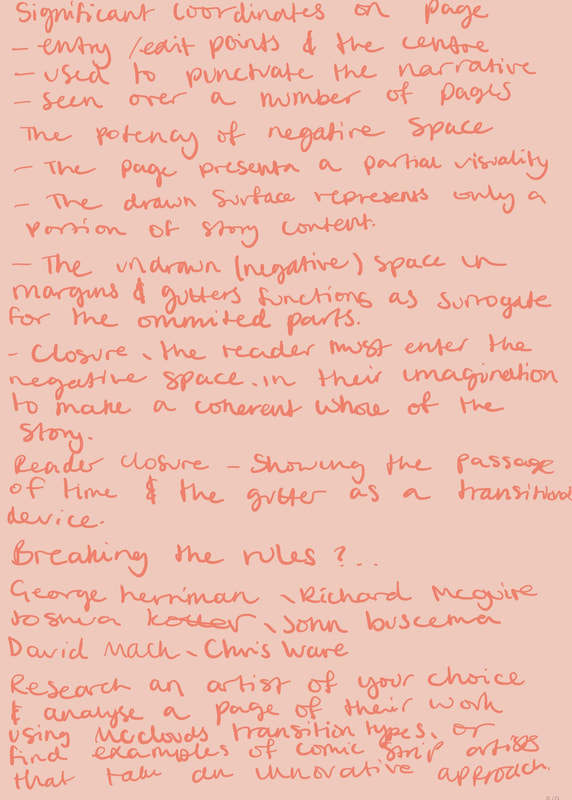 Significant Coordinates on page
- entry /edit points & the centre
- used to punctuate the narrative
- seen over a number of pages
The potency of negative space
- The page presenta a partial visuality
- The drawn surface represents only a
portion of story content.
- The undrawn (negative) space in
margins & gutters functions as surrogate
for the ommited parts.
- Closure, the reader must enter the
negative space, in their imagination
to make a coherent whole of the
story.
Reader closure - Showing the passage
of time & the gutter as a transitional
device.
Breaking the rules?...
George herriman, Richard Mcguire
Joshua, John buscema
David Mach, Chris Ware
Research an artist of your choice
& analyse a page of their work
using mcclouds transition types, or
find examples of comic strip artists
that take an innovative approach.